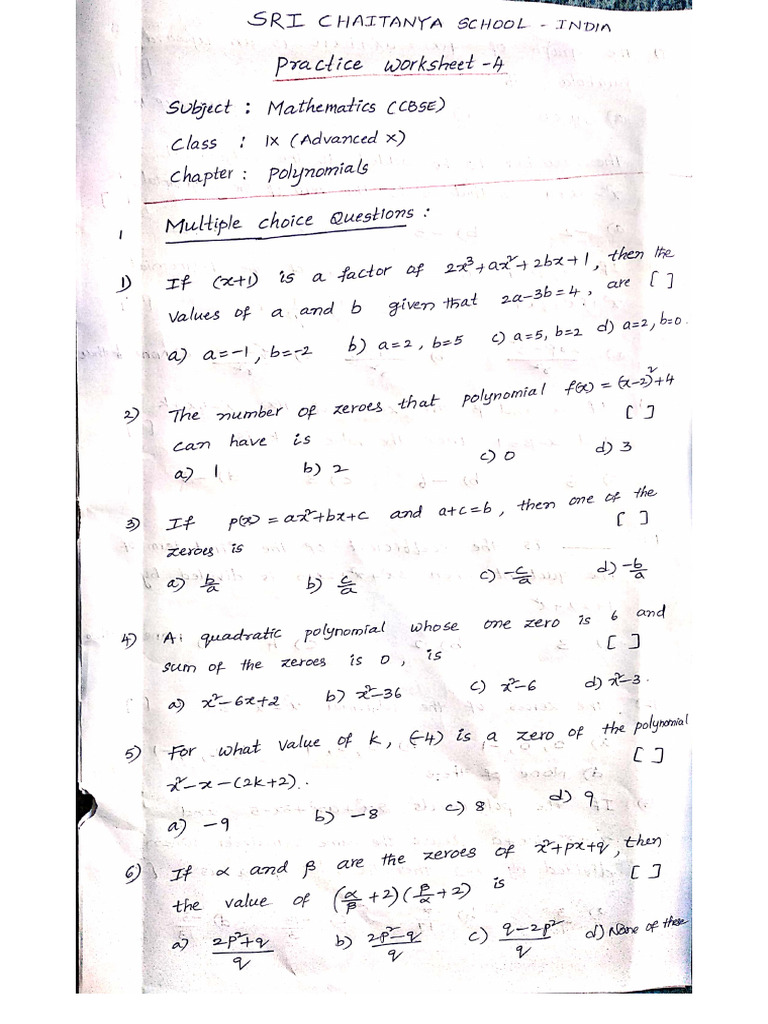 SRI CHAITANYA SCHOOL - INDIA
Practice Worksheet -4
Subject : Mathematics (CBSE)
Class : IX (Advanced X)
Chapter : Polynomials
1 Multiple Choice Questions :
1) If (x+1) is a factor of 2x³+ax²+2bx+1, then the
values of a and b given that 2a-3b=4, are [ ]
a) a=-1, b=-2 b) a=2, b=5 c) a=5, b=2 d) a=2, b=0.
2) The number of zeroes that polynomial f(x) = (x-2)²+4
can have is [ ]
a) 1 b) 2 c) 0 d) 3
3) If p(x) = ax²+bx+c and a+c=b, then one of the
zeroes is [ ]
a) b/a b) c/a c) -c/a d) -b/a
4) A quadratic polynomial whose one zero is 6 and
sum of the zeroes is 0, is [ ]
a) x²-6x+2 b) x²-36 c) x²-6 d) x²-3.
5) For what value of k, (-4) is a zero of the polynomial
x²-x-(2k+2). [ ]
a) -9 b) -8 c) 8 d) 9
6) If α and β are the zeroes of x²+px+q, then
the value of (α/β +2)(β/α +2) is [ ]
a) 2p²+q/q b) 2p²-q/q c) q-2p²/q d) None of these